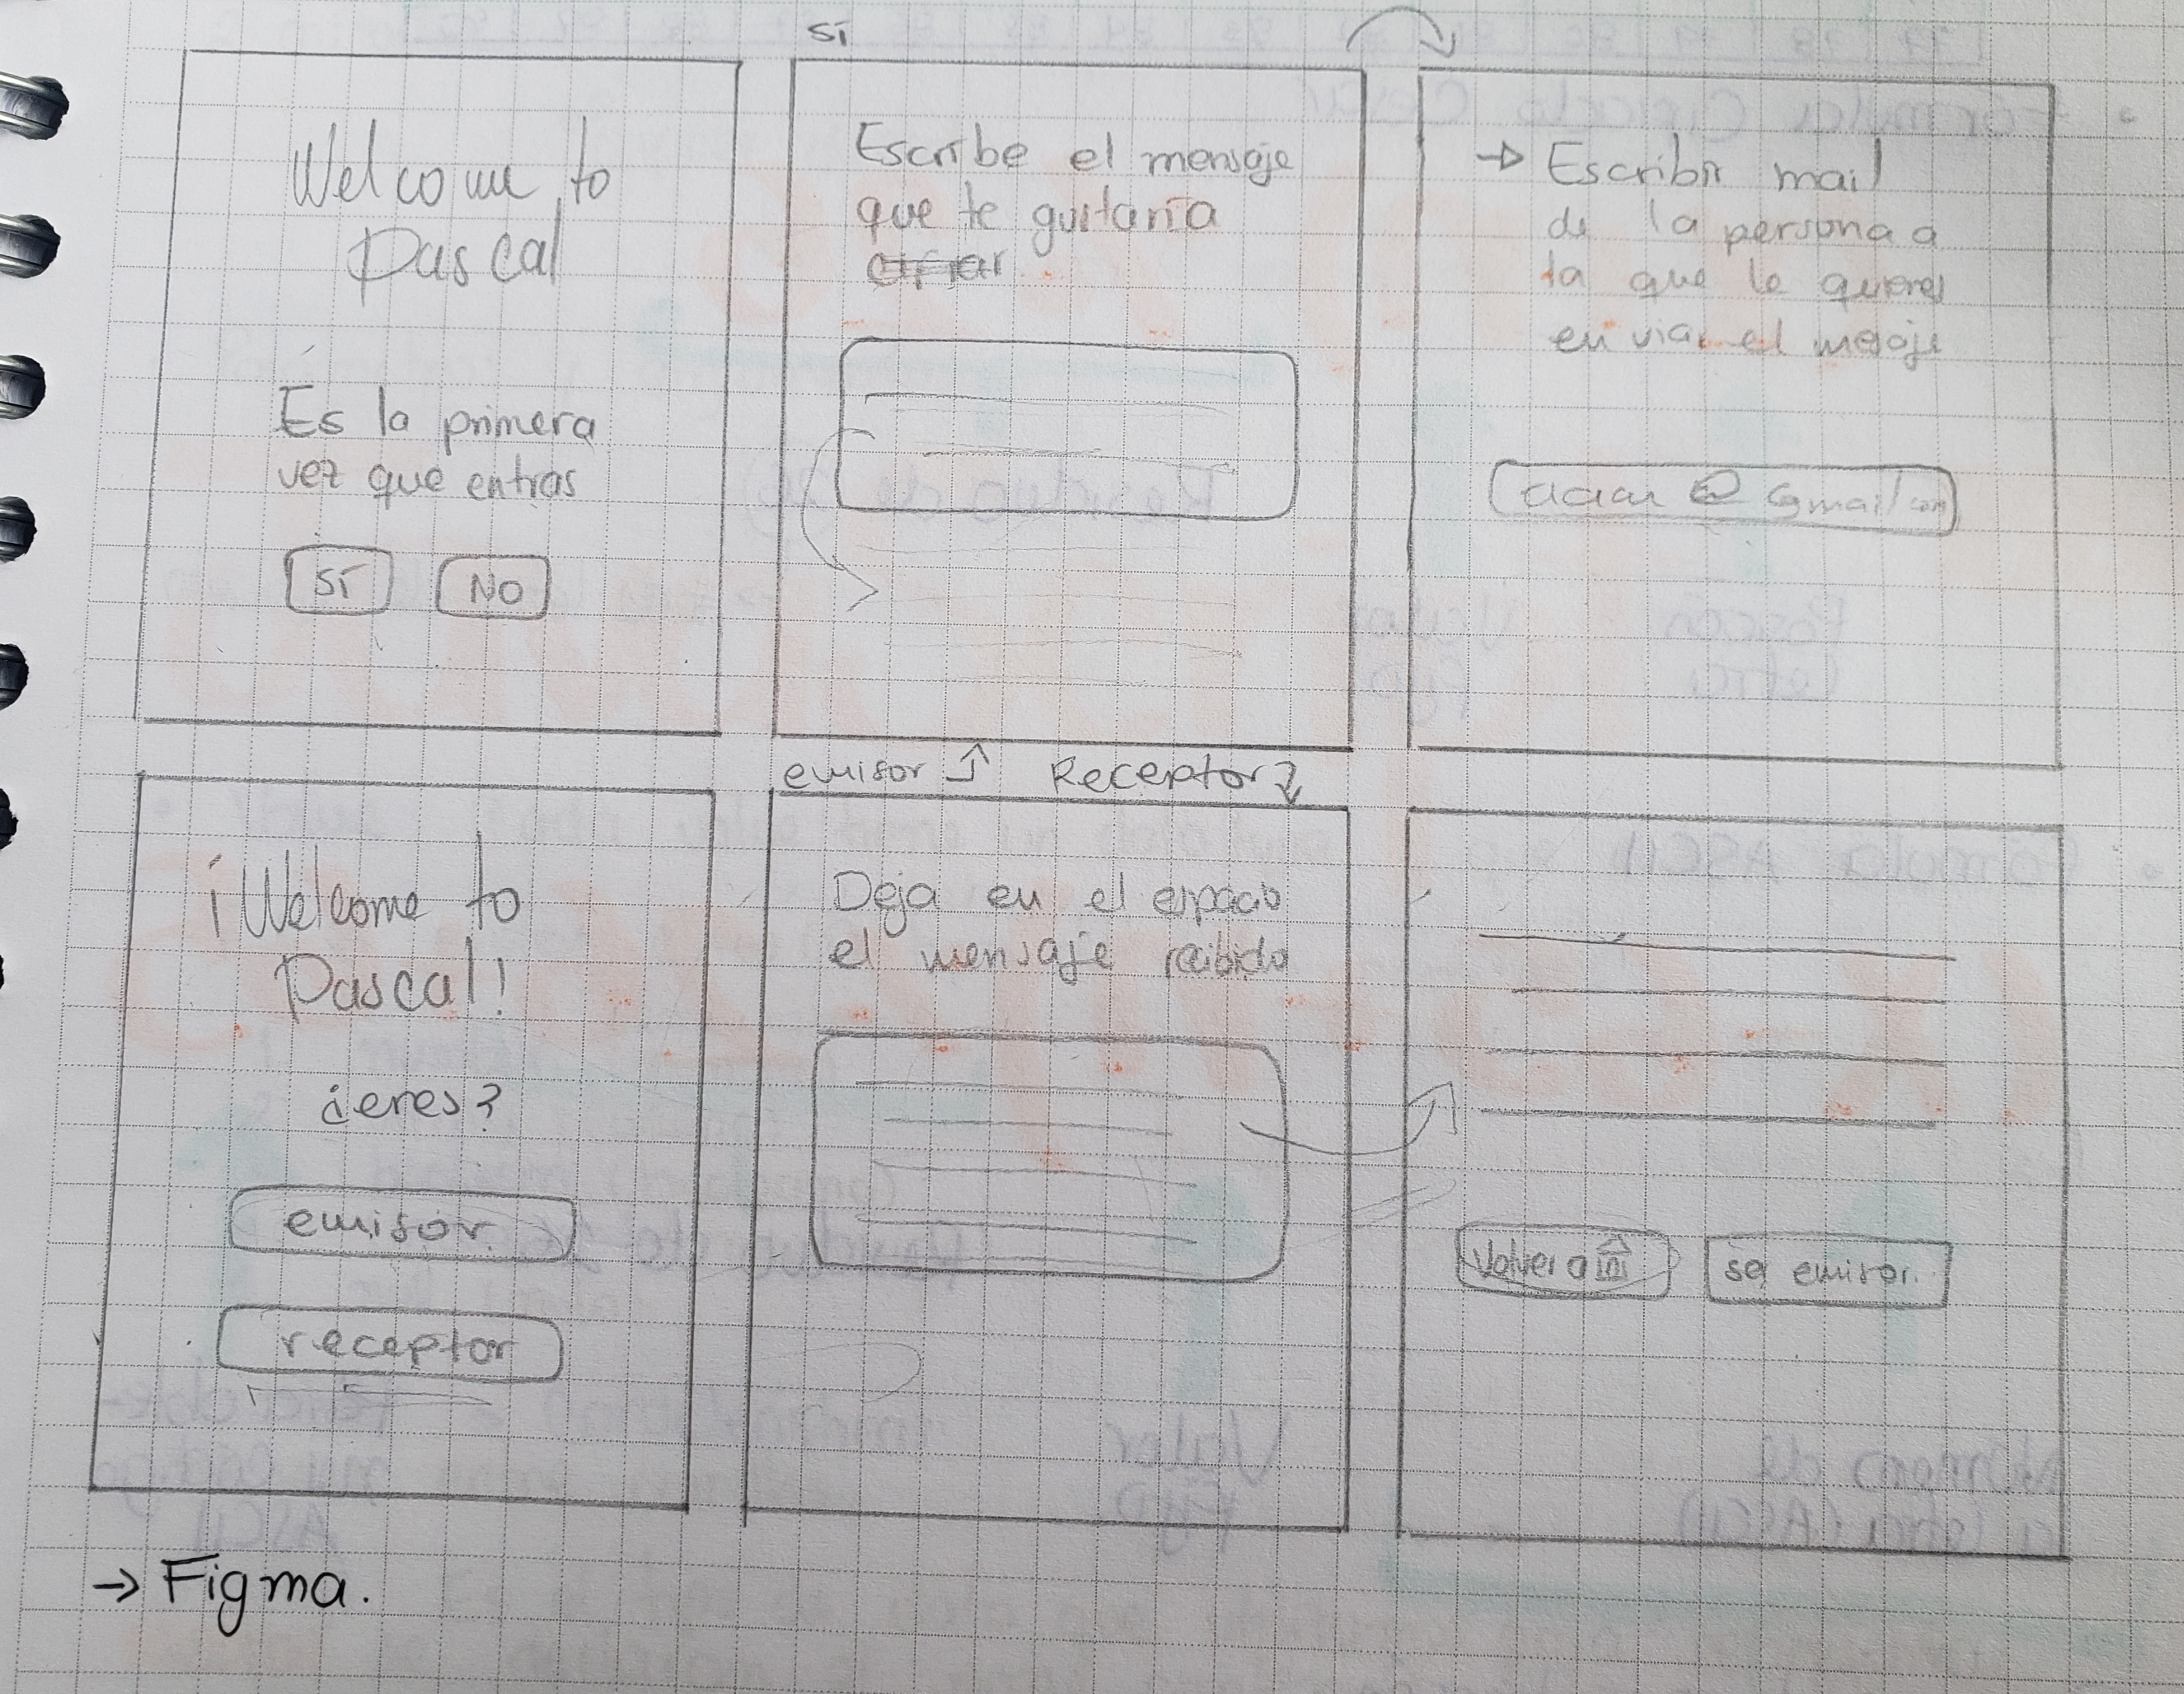 Welcome to
Pascal
Es la primera
vez que entras
SI
NO
Si
Escribe el mensaje
que te gustaria
cifrar
→ Escribir mail
de la persona a
la que le quieres
enviar el mesaje
@ Gmail.com
¡Welcome to
Pascal!
¿eres?
emisor
receptor
emisor
Receptor
Deja en el espacio
el mensaje recibido
Volver a ini
se emisor.
→ Figma.